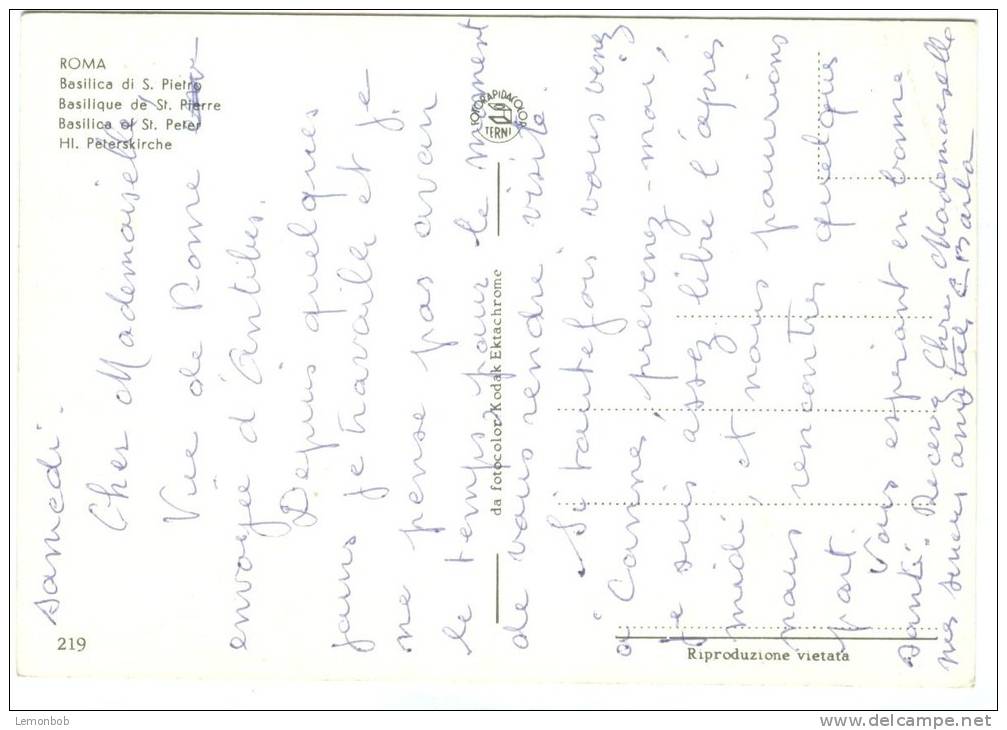 ROMA
Basilica di S. Pietro
Basilique de St. Pierre
Basilica of St. Peter
Hl. Peterskirche
FOTORAPIDACOLOR
TERNI
da fotocolor Kodak Ektachrome
219
Riproduzione vietata
Samedi.
Cher Mademoiselle
Vue de Rome
envoyée d'Antibes.
Depuis quelques
jours je travaille et je
ne pense pas avoir
le temps pour le moment
de vous rendre visite.
Si toutefois vous venez
a Cannes prevenez-moi,
je suis assez libre l'après
midi et nous pourrions
nous rencontrer quelques
part.
Vous espérant en bonne
santé. Recevez Chre Mademoiselle
mes sincères amitiés
Lemonbob
www.delcampe.net